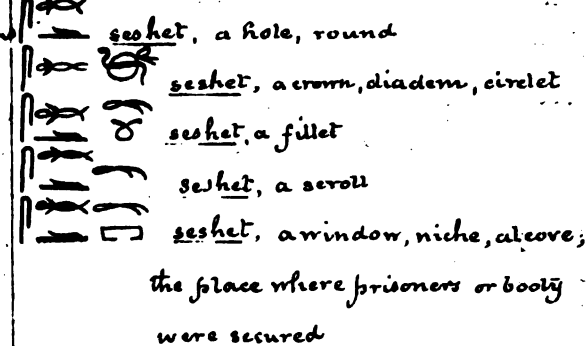 seshet, a hole, round
seshet, a crown, diadem, circlet
seshet, a fillet
seshet, a scroll
seshet, a window, niche, alcove;
the place where prisoners or booty
were secured